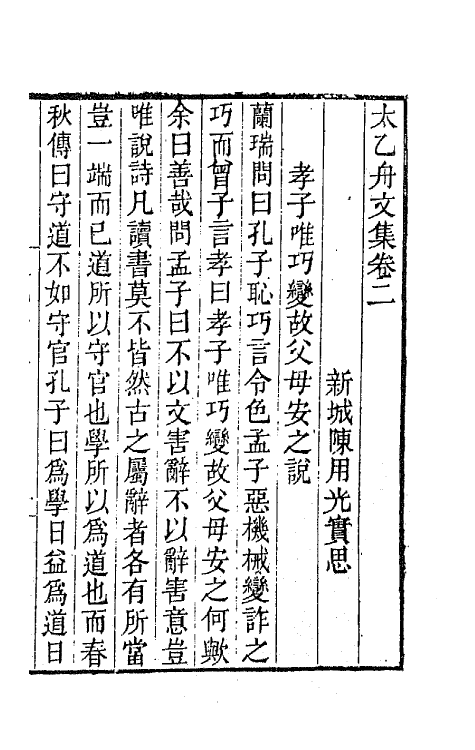 太乙舟文集卷二
新城陳用光實思
孝子唯巧變故父母安之說
蘭瑞問曰孔子恥巧言令色孟子惡機械變詐之
巧而曾子言孝曰孝子唯巧變故父母安之何歟
余曰善哉問孟子曰不以文害辭不以辭害意豈
唯說詩凡讀書莫不皆然古之屬辭者各有所當
豈一端而已道所以守官也學所以爲道也而春
秋傳曰守道不如守官孔子曰爲學日益爲道日